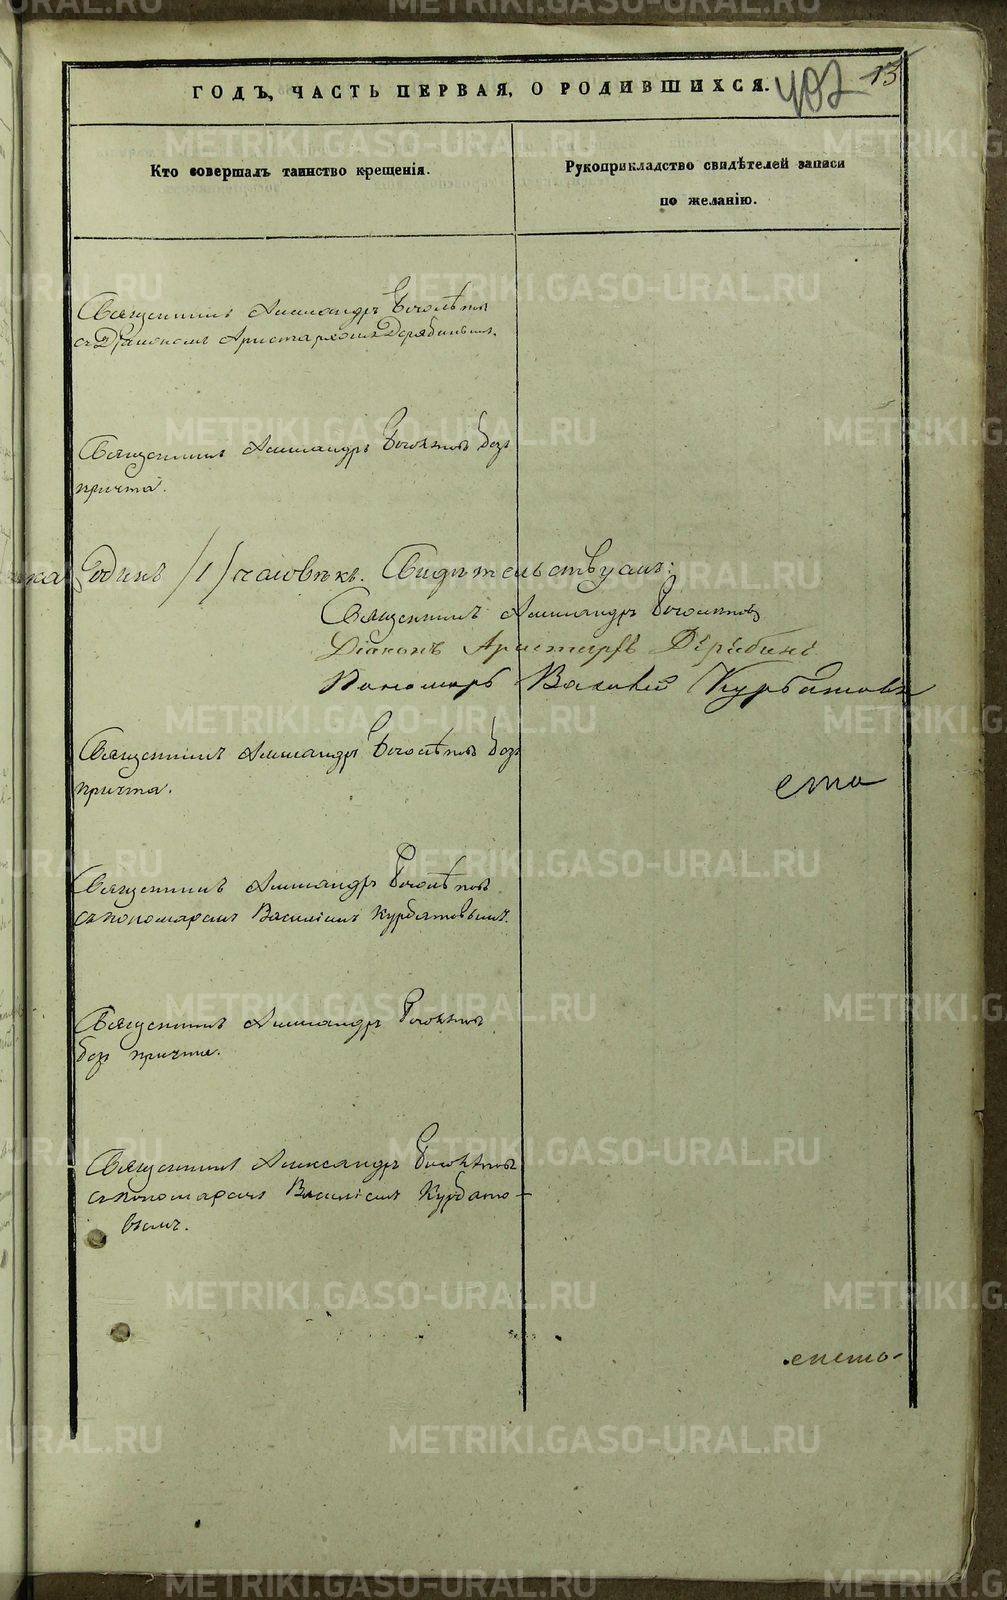 ГОДЪ, ЧАСТЬ ПЕРВАЯ, О РОДИВШИХСЯ.
402 13
Кто совершалъ таинство крещенія.
Рукоприкладство свидѣтелей записи
по желанію.
Священникъ Александръ
съ Діакономъ Аристархомъ Дерябинымъ.
Священникъ Александръ безъ
причта.
Одинъ /1/ человѣкъ. Свидѣтельствуемъ:
Священникъ Александръ
Діаконъ Аристархъ Дерябинъ
Пономарь Василій Курбатовъ
Священникъ Александръ безъ
причта.
сто
Священникъ Александръ
съ пономаремъ Василіемъ Курбатовымъ.
Священникъ Александръ
безъ причта.
Священникъ Александръ
съ пономаремъ Василіемъ Курбато-
вымъ.
METRIKI.GASO-URAL.RU